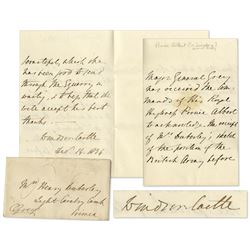 Major General Grey
has received the com
mands of His Royal
Highness Prince Albert
to acknowledge the receipt
of Mrs Duberly's sketch
of the position of the
British Army before
Sevastopol, which she
has been good to send
through the Equerry in
waiting, & to beg that she
will accept his best
thanks.
Windsor Castle
1855
Mrs Henry Duberly
Light Cavalry Camp
Crimea
Windsor Castle